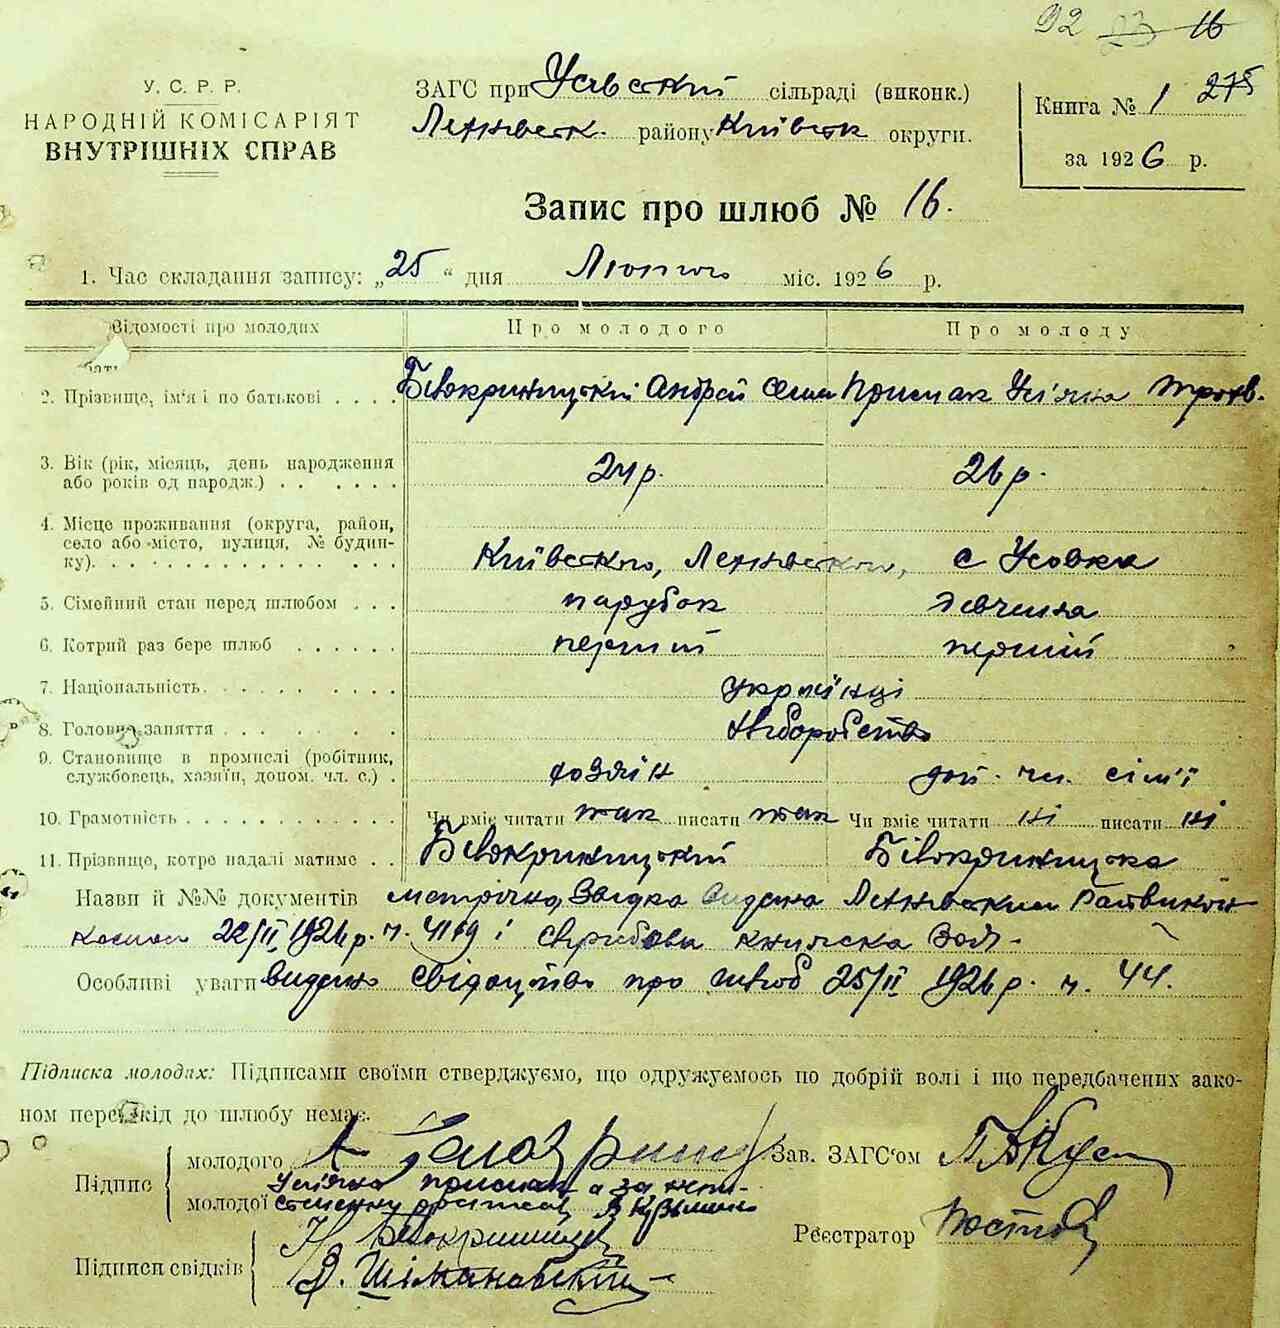 92 83 16
У. С. Р. Р.
НАРОДНІЙ КОМІСАРІЯТ
ВНУТРІШНІХ СПРАВ
ЗАГС при Усівський сільраді (виконк.)
району Київськ округи.
Книга № 1 275
за 1926 р.
Запис про шлюб № 16.
1. Час складання запису: „25“ дня Лютого міс. 1926 р.
Відомості про молодих Про молодого Про молоду
2. Прізвище, ім'я і по батькові . . . . Білокриницькій Андрій Семи Примак Ул'яна Трохв.
3. Вік (рік, місяць, день народження
або років од народж.) . . . . . . 24 р. 26 р.
4. Місце проживання (округа, район,
село або місто, вулиця, № будин-
ку). Київського, с Усовка
5. Сімейний стан перед шлюбом . . . парубок дівчина
6. Котрий раз бере шлюб . . . . . . перший перший
7. Національність. українці
8. Головне заняття хліборобство
9. Становище в промислі (робітник,
службовець, хазяїн, допом. чл. с.) . хозяїн доп. чл. сім'ї
10. Грамотність Чи вміє читати так писати так Чи вміє читати ні писати ні
11. Прізвище, котре надалі матиме . . Білокриницький Білокриницка
Назви й №№ документів метрична, видана
1926 р. ч. 4169 і книжка
Особливі уваги видано свідоцтво про шлюб 25/II 1926 р. ч. 44.
Підписка молодих: Підписами своїми стверджуємо, що одружуємось по добрій волі і що передбачених зако-
ном перешкід до шлюбу немає.
Підпис
молодого А
молодої Ул'яна Примак а за
Зав. ЗАГС'ом
Реєстратор
Підписи свідків
Шімановский